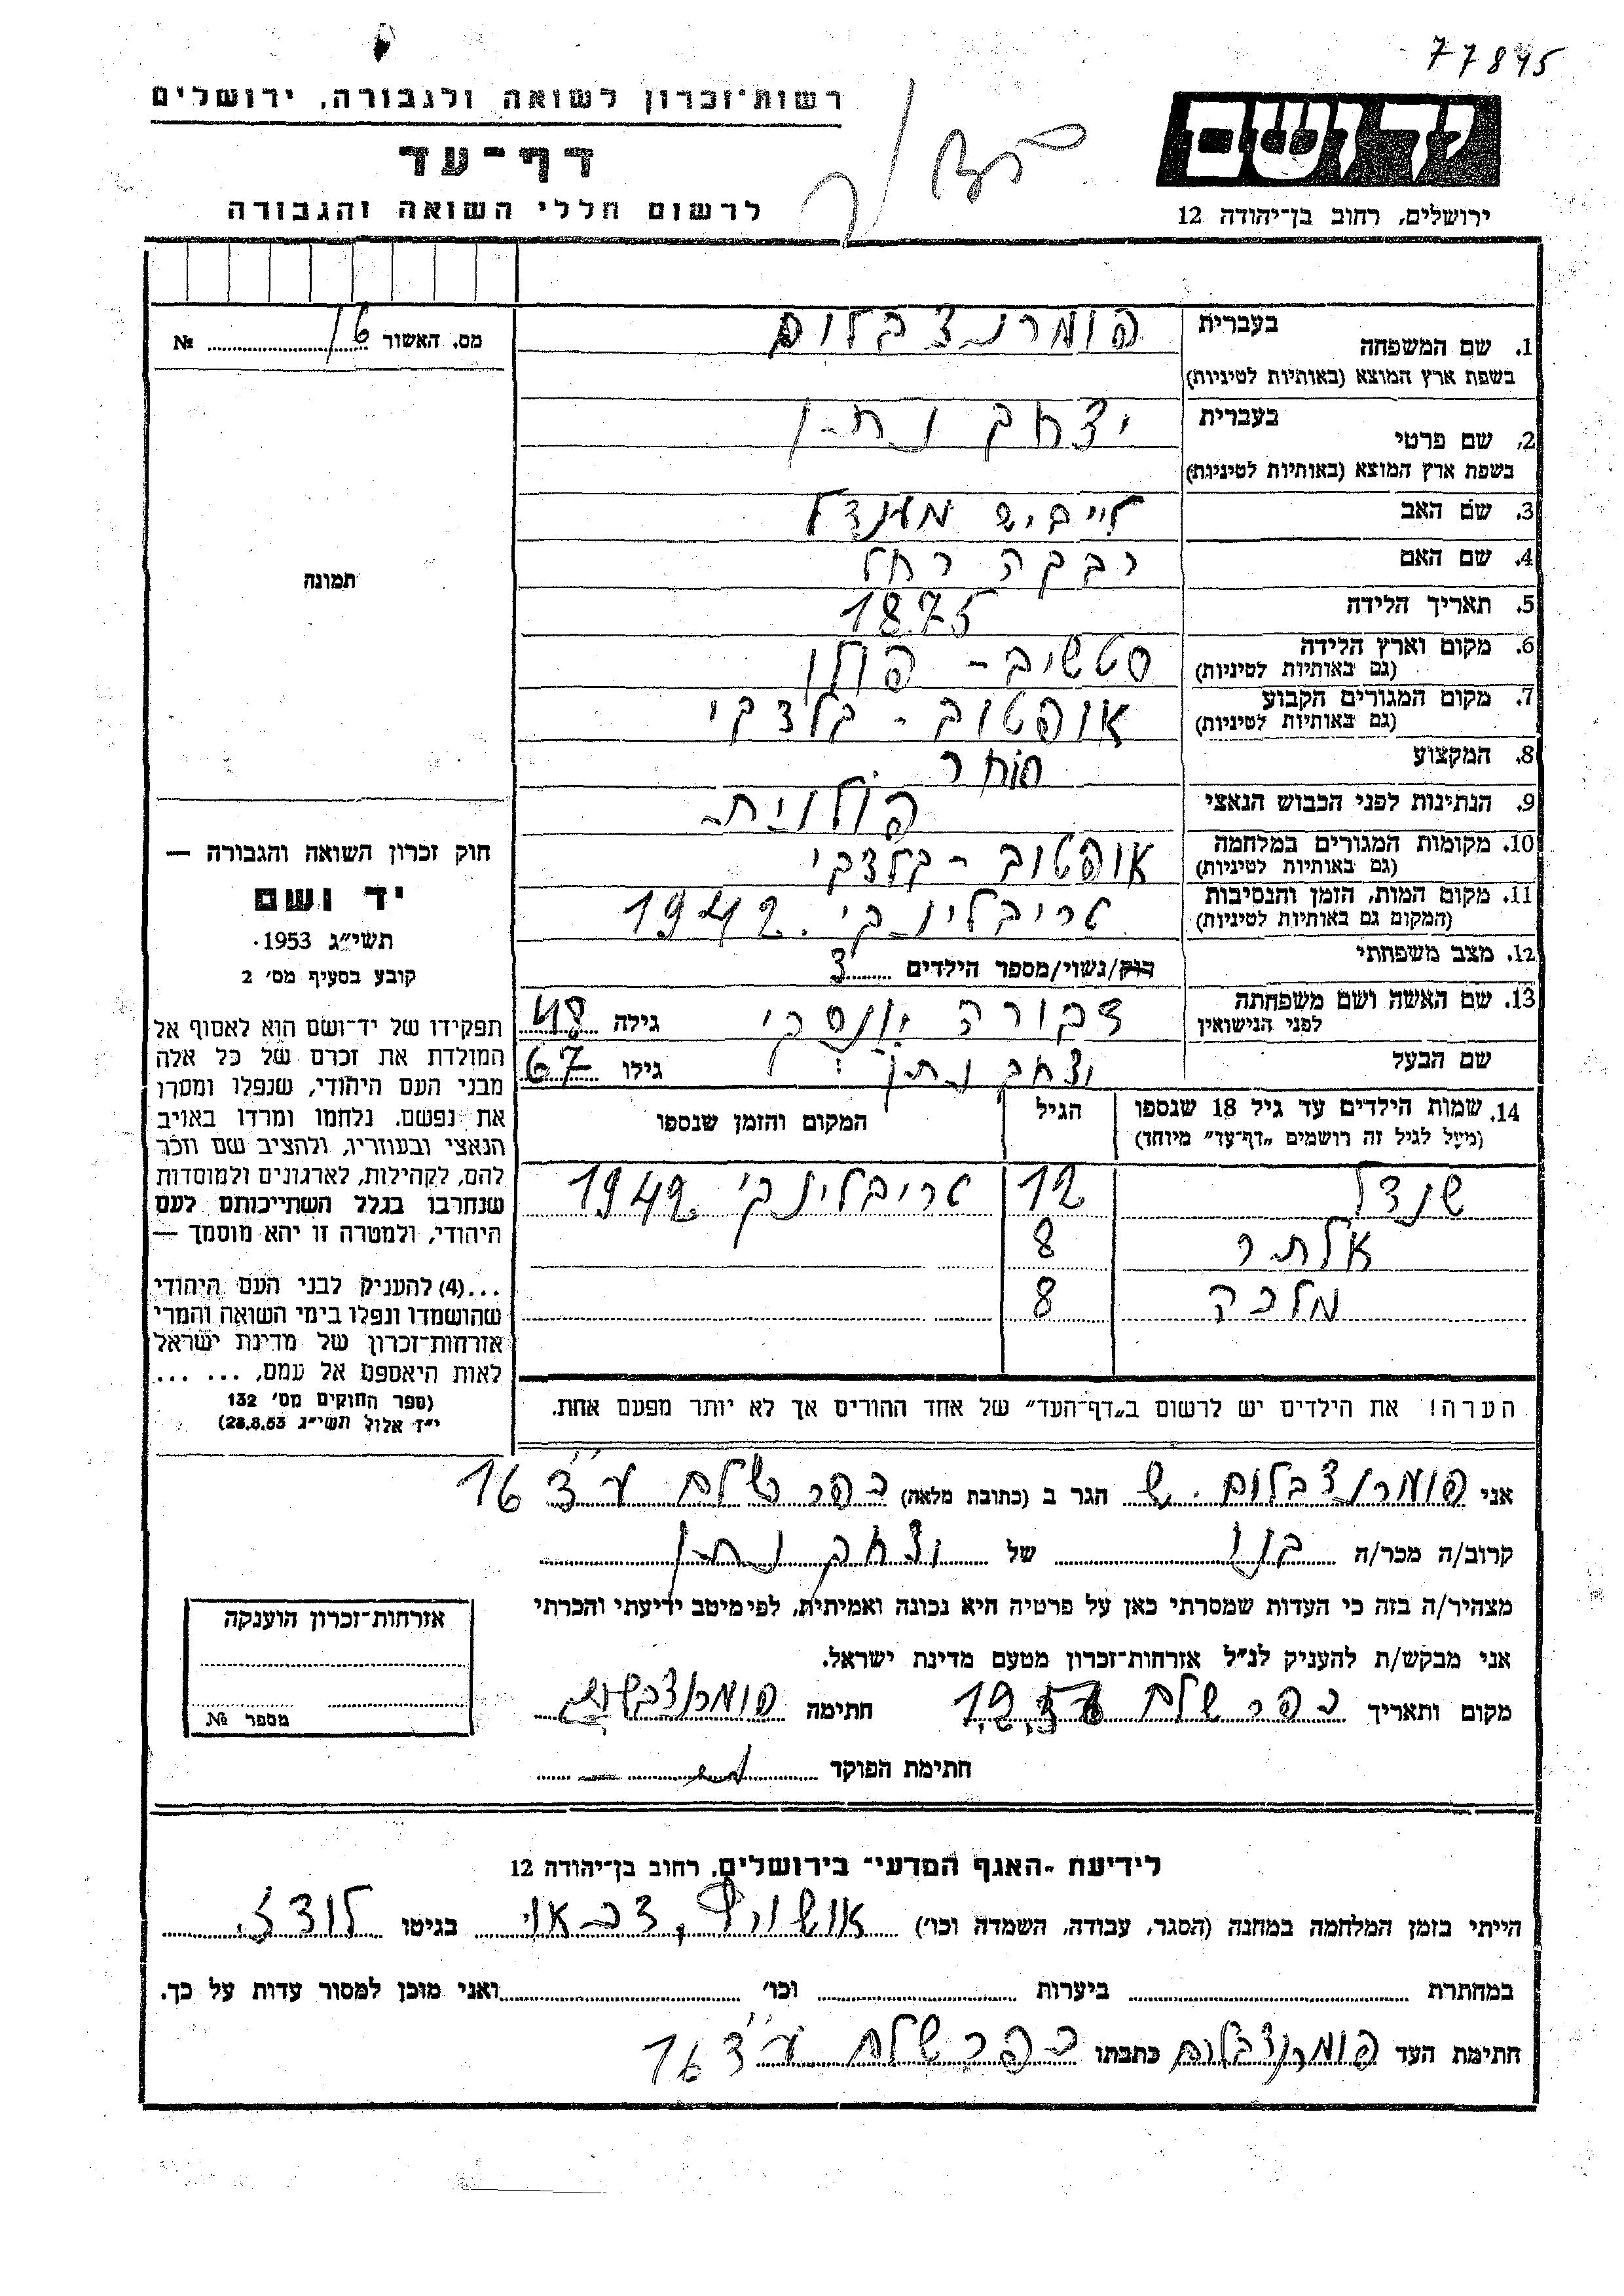 77895
רשות־זכרון לשואה ולגבורה, ירושלים
דף־עד
לרשום חללי השואה והגבורה
יד ושם
ירושלים, רחוב בן־יהודה 12
מס. האשור 16 №
תמונה
חוק זכרון השואה והגבורה —
יד ושם
תשי"ג 1953.
קובע בסעיף מס' 2
תפקידו של יד־ושם הוא לאסוף אל
המולדת את זכרם של כל אלה
מבני העם היהודי, שנפלו ומסרו
את נפשם, נלחמו ומרדו באויב
הנאצי ובעוזריו, ולהציב שם וזכר
להם, לקהילות, לארגונים ולמוסדות
שנחרבו בגלל השתייכותם לעם
היהודי, ולמטרה זו יהא מוסמך —
...(4) להעניק לבני העם היהודי
שהושמדו ונפלו בימי השואה והמרי
אזרחות־זכרון של מדינת ישראל
לאות היאספם אל עמם, ... ...
(ספר החוקים מס' 132
י"ז אלול תשי"ג 28.8.53)
1. שם המשפחה בעברית פומרנצבלום
בשפת ארץ המוצא (באותיות לטיניות)
2. שם פרטי בעברית יצחק נתן
בשפת ארץ המוצא (באותיות לטיניות)
3. שם האב לייביש מענדל
4. שם האם רבקה רחל
5. תאריך הלידה 1875
6. מקום וארץ הלידה סטשיב - פולן
(גם באותיות לטיניות)
7. מקום המגורים הקבוע אופטוב - קלצקי
(גם באותיות לטיניות)
8. המקצוע סוחר
9. הנתינות לפני הכבוש הנאצי פולנית
10. מקומות המגורים במלחמה אופטוב - קלצקי
(גם באותיות לטיניות)
11. מקום המות, הזמן והנסיבות טריבלינקי. 1942
(המקום גם באותיות לטיניות)
12. מצב משפחתי רוק/נשוי/מספר הילדים 3
13. שם האשה ושם משפחתה דבורה גילה 48
לפני הנישואין
שם הבעל יצחק נתן גילו 67
14. שמות הילדים עד גיל 18 שנספו הגיל המקום והזמן שנספו
(מעל לגיל זה רושמים "דף־עד" מיוחד)
שנדל 12 טריבלינקי 1942
אלתר 8
מלכה 8
הערה! את הילדים יש לרשום ב"דף־העד" של אחד ההורים אך לא יותר מפעם אחת.
אני פומרנצבלום. ש הגר ב (כתובת מלאה) כפר שלם ע"צ 16
קרוב/ה מכר/ה בנו של יצחק נתן
מצהיר/ה בזה כי העדות שמסרתי כאן על פרטיה היא נכונה ואמיתית, לפי מיטב ידיעתי והכרתי
אני מבקש/ת להעניק לנ"ל אזרחות־זכרון מטעם מדינת ישראל.
מקום ותאריך כפר שלם חתימה פומרנצבלום
חתימת הפוקד
אזרחות־זכרון הוענקה
מספר №
לידיעת "האגף המדעי" בירושלים, רחוב בן־יהודה 12
הייתי בזמן המלחמה במחנה (הסגר, עבודה, השמדה וכו') בגיטו לודז.
במחתרת ביערות וכו' ואני מוכן למסור עדות על כך.
חתימת העד פומרנצבלום כתבתו כפר שלם ע"צ 16